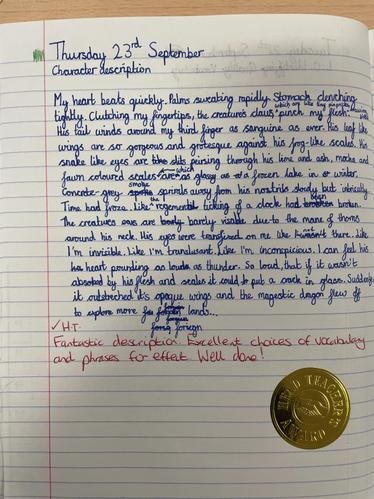 Thursday 23rd September
Character description
My heart beats quickly. Palms sweating rapidly. Stomach clenching
which are like tiny
tightly. Clutching my fingertips, the creature's claws punch my flesh.
His tail winds around my third finger as sanguine as ever. His leaf like
wings are so gorgeous and grotesque against his frog-like scales. His
snake like eyes are slits peering through his lime and ash, mocha and
which
fawn coloured scales are as glossy as a frozen lake in winter.
smoke
Concrete-grey spirals away from his nostrils slowly but intricately.
the
been
Time had froze. Like ticking of a clock had broken.
The creatures ears are barely visible due to the mane of thorns
around his neck. His eyes were transfixed on me like I wasn't there. Like
I'm invisible. Like I'm translucent. Like I'm inconspicious. I can feel his
heart pounding as loud as thunder. So loud, that if it wasn't
absorbed by his flesh and scales it could put a crack in glass. Suddenly,
it outstreched it's opaque wings and the majestic dragon flew off
to explore more lands...
foreign
✓ H.T.
Fantastic description. Excellent choices of vocabulary
and phrases for effect. Well done!
HEAD TEACHER'S
AWARD